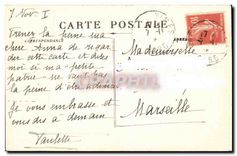 7 Nov I
CARTE POSTALE
CORRESPONDANCE
Prenez la peine ma
chère Anna de regar
der cette carte et dites
moi si ma petite
patrie ne vaut pas
la peine d'être admirée
Je vous embrasse et
vous dis à demain
Paulette
Mademoiselle
Marseille